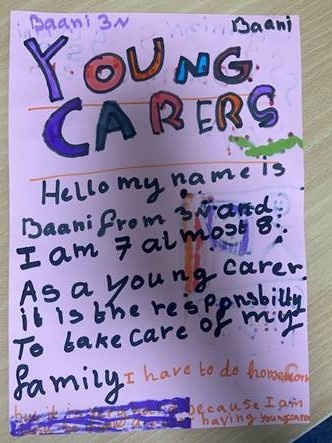 Baani 3N Baani
YOUNG
CARERS
Hello my name is
Baani from 3N and
I am 7 almost 8.
As a young carer
it is the responsbilty
To take care of my
family I have to do homework
because I am
having young